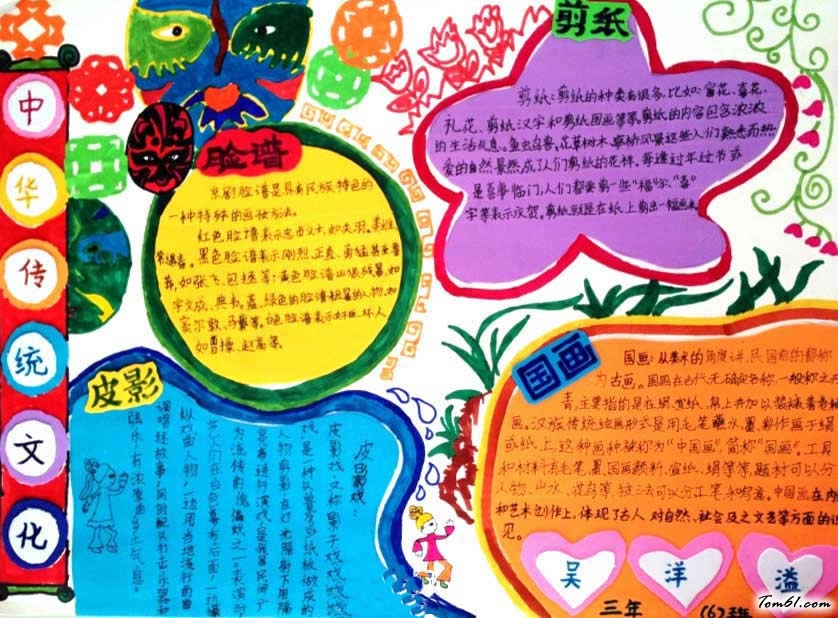 中
华
传
统
文
化
脸谱
京剧脸谱是具有民族特色的
一种特殊的画妆方法。
红色脸谱表示忠贞义士,如关羽、姜维
黑色脸谱表示刚烈、正直、勇猛甚至鲁
莽,如张飞、包拯等;黄色脸谱
宇文成、典韦。蓝、绿色的脸谱 人物,如
等。白色脸谱表示奸臣、坏人
如曹操、赵高等。
剪纸
剪纸:剪纸的种类有很多,比如:窗花、喜花、
礼花、剪纸汉字和剪纸国画等等。剪纸的内容包含浓浓
的生活气息。鱼虫鸟兽、花草树木、亭桥风景这些人们熟悉而热
爱的自然景然成了人们剪纸的花样。每逢过年过节或
是喜事临门,人们都要剪一些“福”字、“喜”
字等表示庆贺。剪纸就是在纸上剪出一幅画来
皮影
皮影戏
皮影戏,又称“影子戏”
戏,是一种以兽皮或纸板做成的
人物剪影,在灯光照射下用隔
亮布进行演戏,是我国民间广
为流传的傀儡戏之一。表演时
艺人们在白色幕布后面,一边操
纵戏曲人物,一边用当地流行的曲
调唱述故事,同时配以打击乐器和
弦乐,有浓厚的乡土气息。
国画
国画:从美术的角度讲,民国前的都称
为古画。国画在古代无确定名称,一般称之
青,主要指的是在绢、宣纸、帛上并加以装裱的卷轴
画。汉族传统绘画形式是用毛笔蘸水、墨、彩作画于绢
或纸上,这种画种被称为“中国画”,简称“国画”。工具
和材料有毛笔、墨、国画颜料、宣纸、绢等等,题材可以分
人物、山水、花鸟等,技法可以分工笔和写意。中国画在内
和艺术创作上,体现了古人对自然、社会及之文艺等方面的
见。
吴 洋 溢
三年 (6)班
Tom61.com